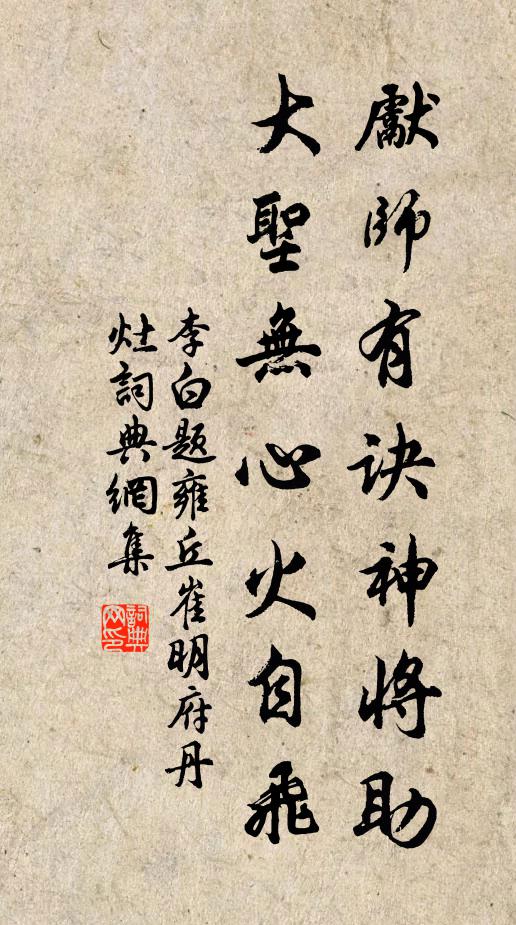 獻師有诀神將助
大聖無心火自飛
李白题雍丘崔明府丹
灶詞典網集
詞典
网印